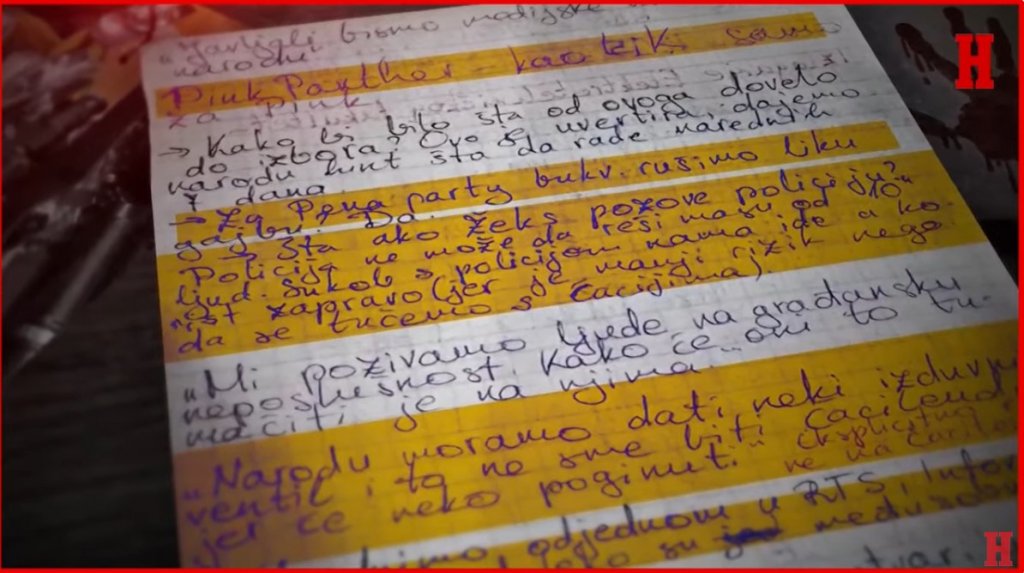 "Javljali bismo medijske
narodu"
Pink Panther - kao lik samo
za pink
→ Kako bi bilo šta od ovoga dovelo
do izbora? Ovo je uvertira, dajemo
narodu hint šta da rade narednih
7 dana.
→ Za party bukv. rušimo liku
gajbu. Da.
"Šta ako žeks pozove policiju?"
Policija ne može da reši masu od 10
ljud. Sukob s policijom nama ide u ko-
rist zapravo (jer je manji rizik nego
da se tučemo s ćacijima).
"Mi pozivamo ljude na građansku
neposlušnost. Kako će oni to tu-
mačiti je na njima.
"Narodu moramo dati neki izduvni
ventil i to ne sme biti Ćacilend
jer će neko poginuti. eksplicitno
ne na Ćacilend
odjednom u RTS, Infor
su među
stvar.
H
H